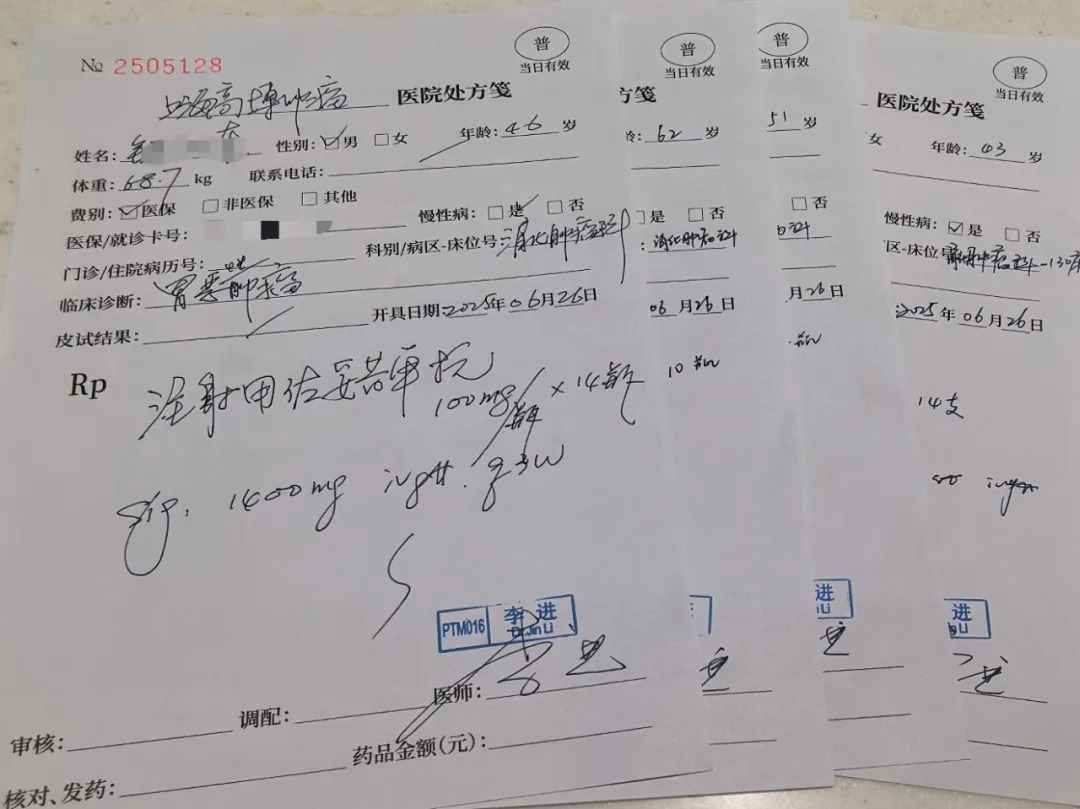 № 2505128
普
当日有效
上海高博肿瘤 医院处方笺
姓名: 性别: ☑男 □女 年龄: 46 岁
体重: 68.7 kg 联系电话:
费别: ☑医保 □非医保 □其他
医保/就诊卡号: 慢性病: □是 □否
门诊/住院病历号: 科别/病区-床位号: 消化肿瘤科
临床诊断: 胃恶性肿瘤
皮试结果: 开具日期: 2025年06月26日
Rp
注射用佐妥昔单抗
100mg/瓶 × 14瓶
Sig. 1400mg ivgtt. q3w
PTM016 李进
Dr.Jin LI
医师:
调配:
审核:
药品金额(元):
核对、发药:
普
当日有效
方笺
龄: 62 岁
是 □否
: 消化肿瘤科
06月26日
10瓶
普
当日有效
51岁
□否
月26日
进
LI
普
当日有效
医院处方笺
女 年龄: 43 岁
慢性病: ☑是 □否
区-床位号
2025年06月26日
14支
进
LI